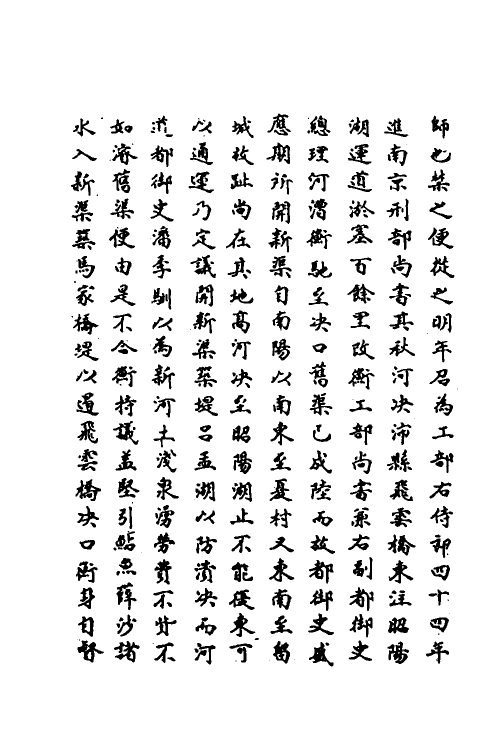 師也禁之便從之明年召為工部右侍郎四十四年
進南京刑部尚書其秋河决沛縣飛雲橋東注昭陽
湖運道淤塞百餘里改衡工部尚書兼右副都御史
總理河漕衡馳至决口舊渠已成陸而故都御史盛
應期所開新渠自南陽以南東至夏村又東南至留
城故趾尚在其地髙河决至昭陽湖止不能復東可
以通運乃定議開新渠築堤吕孟湖以防潰决而河
道都御史潘季馴以為新河土淺泉湧勞費不貲不
如濬舊渠便由是不合衡持議益堅引鮎魚薛沙諸
水入新渠築馬家橋堤以遏飛雲橋决口衡身自督